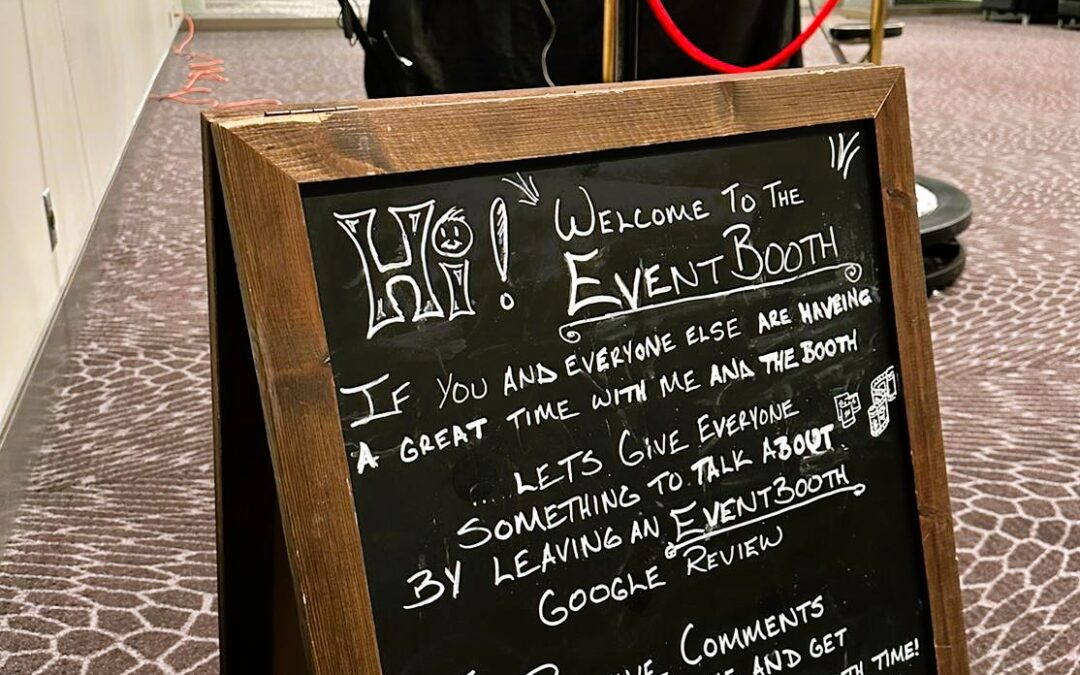 Hi! WELCOME TO THE
EVENTBOOTH
IF YOU AND EVERYONE ELSE ARE HAVEING
A GREAT TIME WITH ME AND THE BOOTH
.... LETS GIVE EVERYONE
SOMETHING TO TALK ABOUT
BY LEAVING AN EVENTBOOTH
GOOGLE REVIEW
COMMENTS
AND GET
TIME!